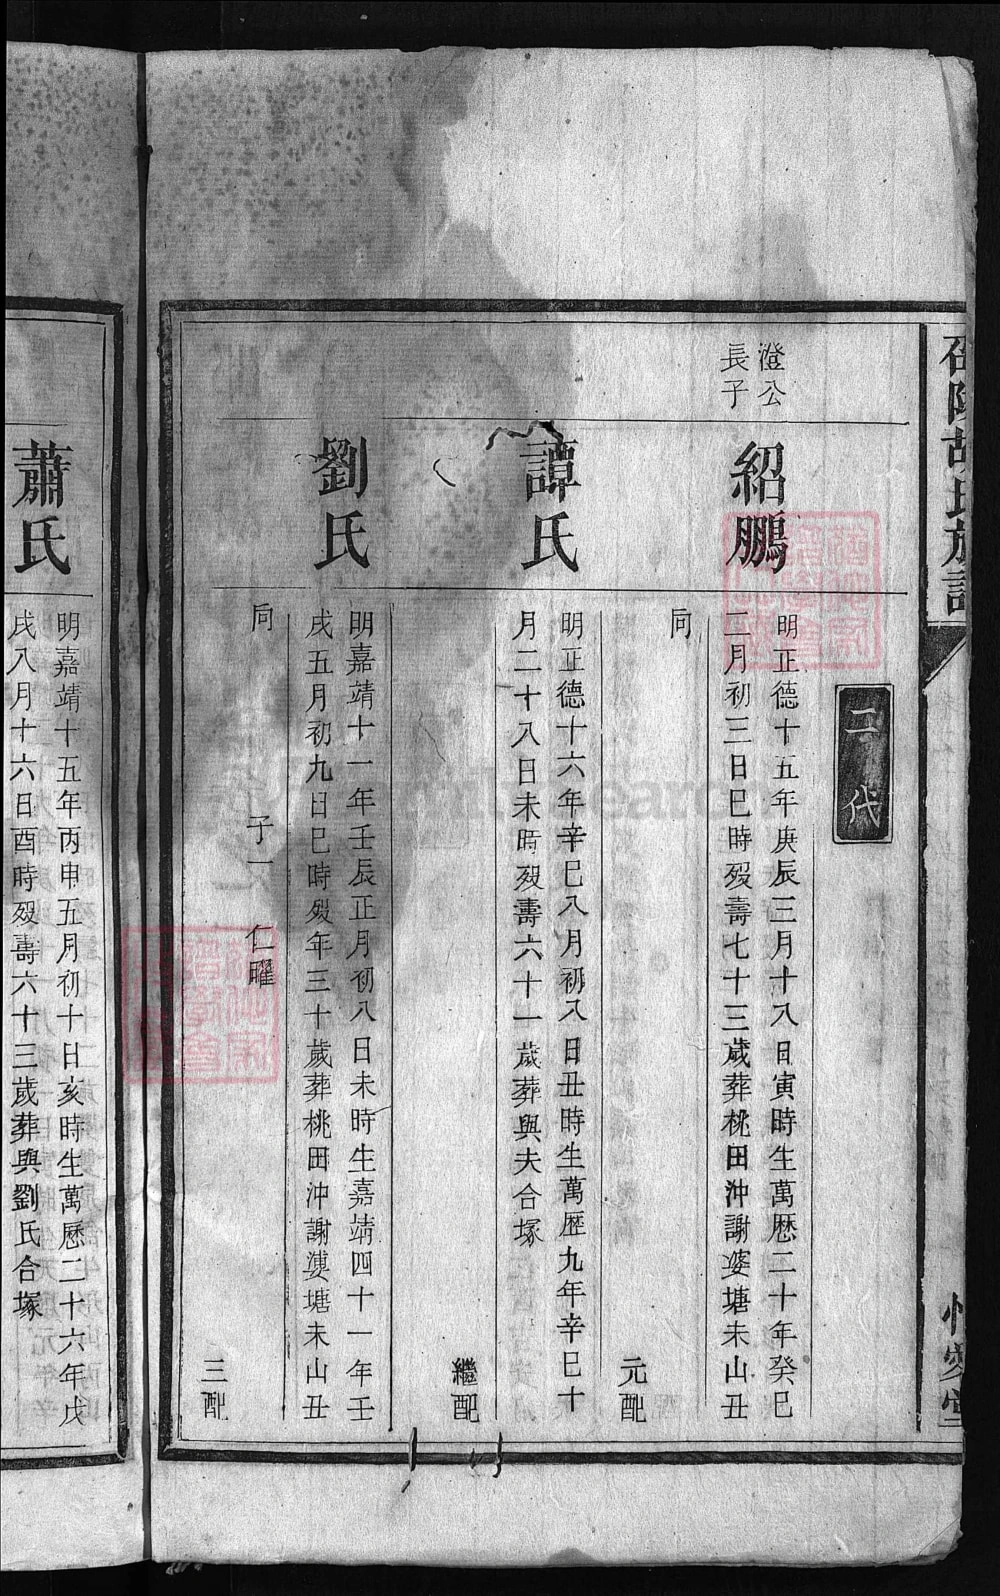 二代
澄公
長子
紹鵬
明正德十五年庚辰三月十八日寅時生萬歷二十年癸巳
二月初三日巳時歿壽七十三歲葬桃田沖謝婆塘未山丑
同
元配
譚氏
明正德十六年辛巳八月初八日丑時生萬歷九年辛巳十
月二十八日未時歿壽六十一歲葬與夫合塚
繼配
劉氏
明嘉靖十一年壬辰正月初八日未時生嘉靖四十一年壬
戌五月初九日巳時歿年三十歲葬桃田沖謝婆塘未山丑
同 子一 仁曜
三配
蕭氏
明嘉靖十五年丙申五月初十日亥時生萬歷二十六年戊
戌八月十六日酉時歿壽六十三歲葬與劉氏合塚